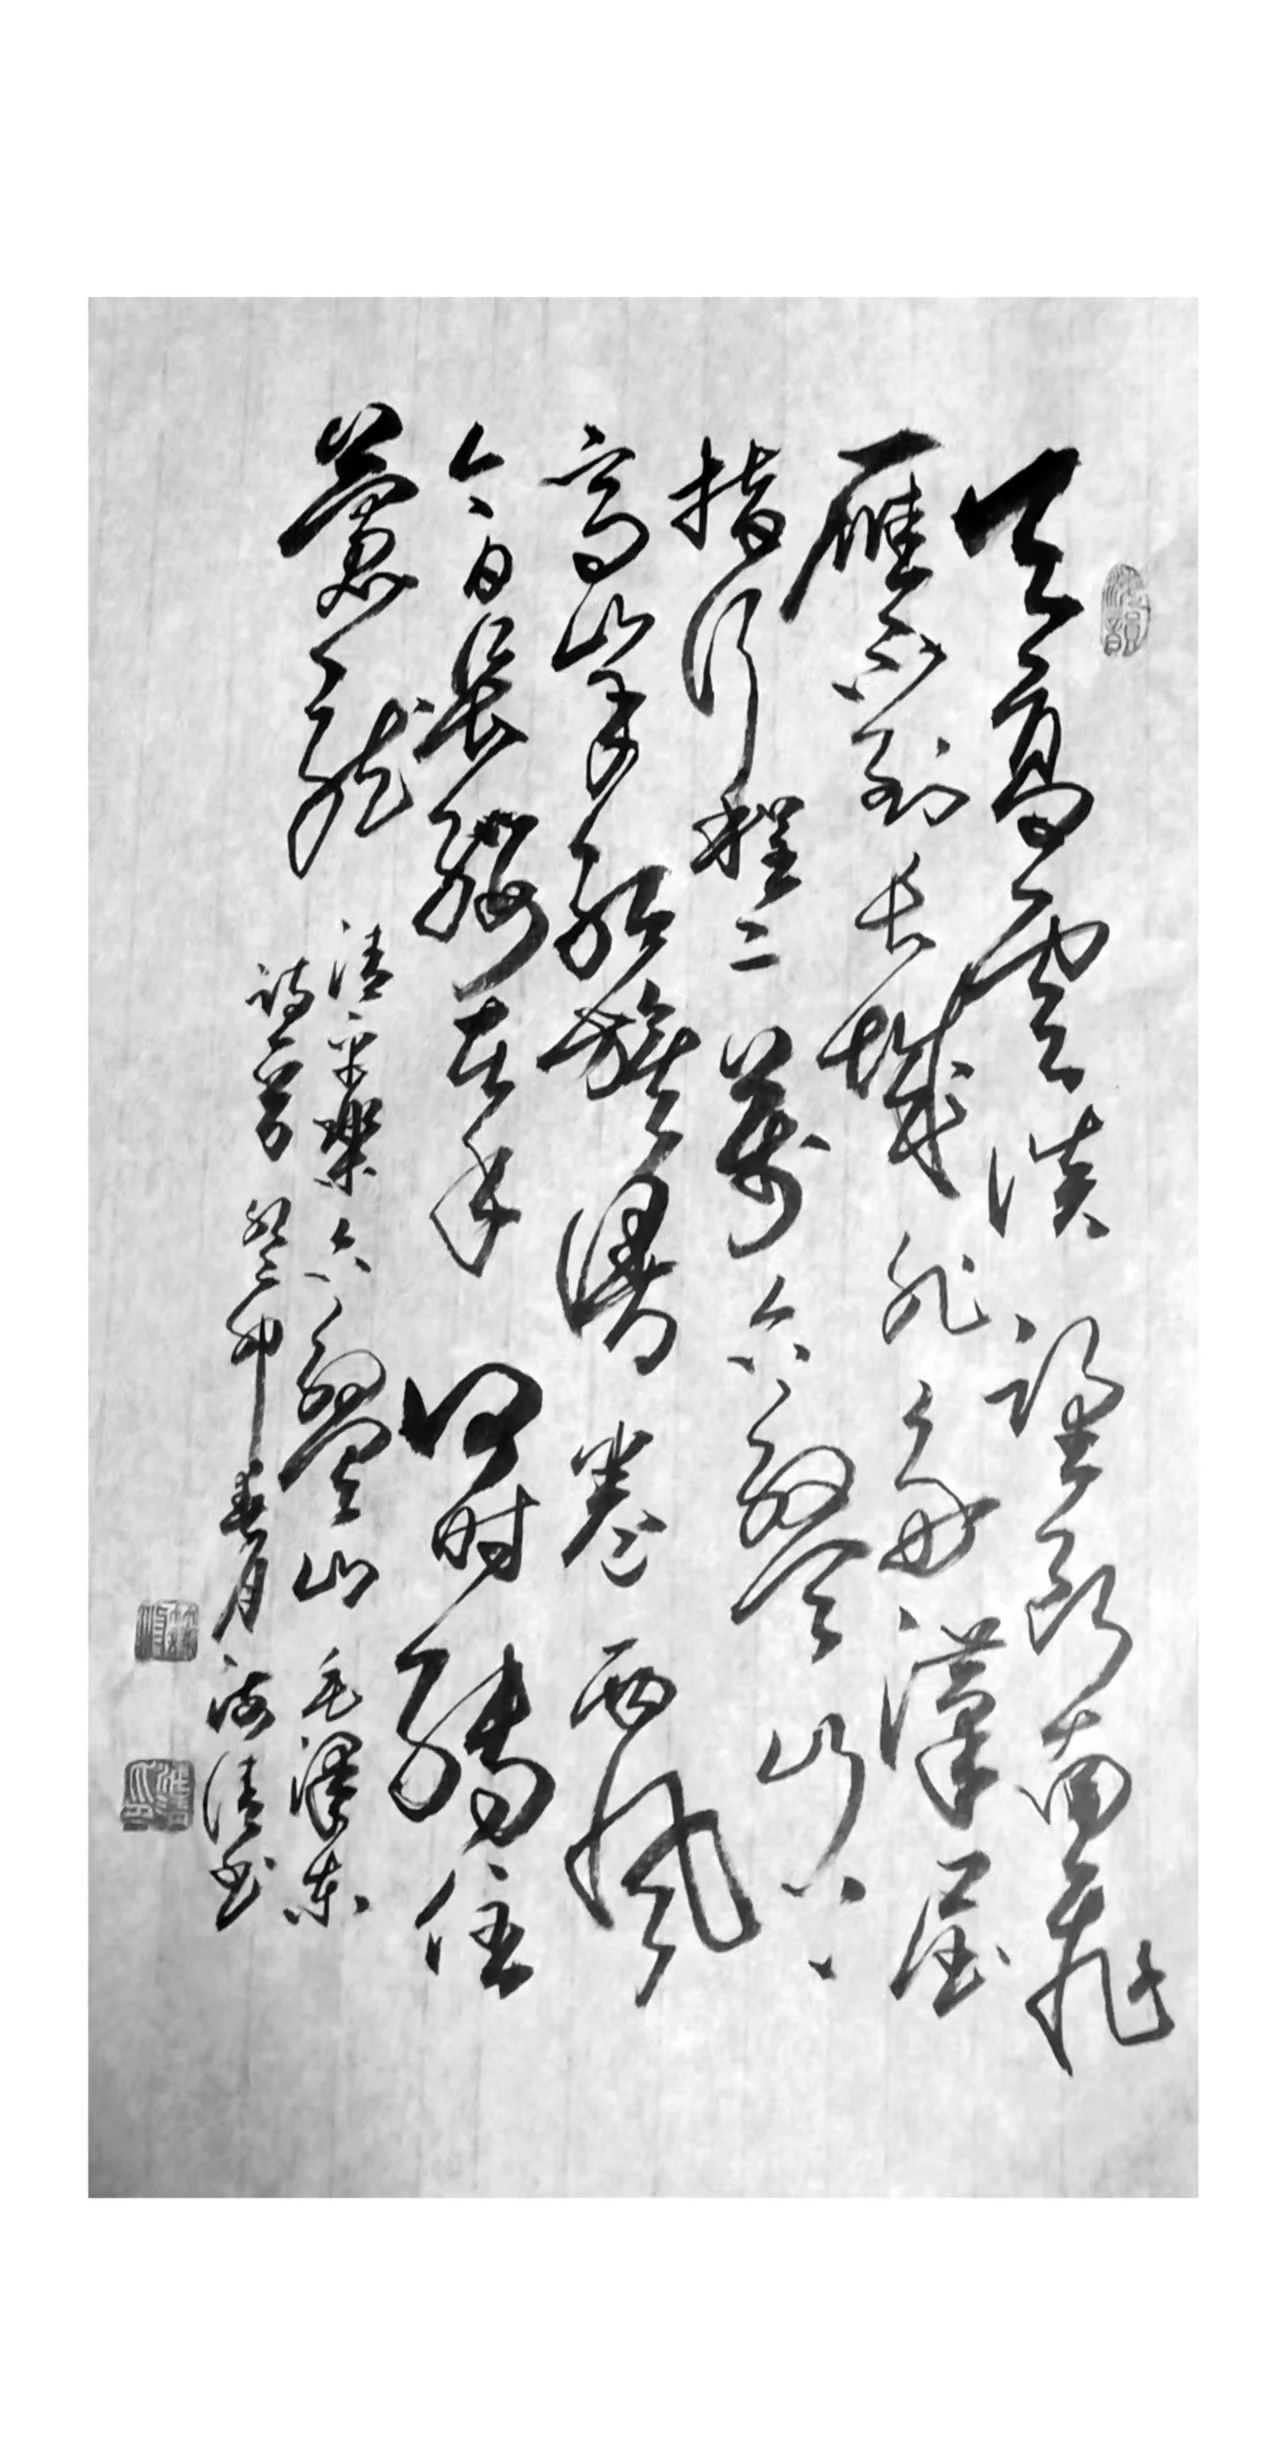 天高雲淡望断南飛
雁不到長城非好漢屈
指行程二萬六盤山上
高峰紅旗漫卷西風
今日長纓在手何時縛住
蒼龍
清平樂六盤山毛澤東
詩一首癸卯春月海清书